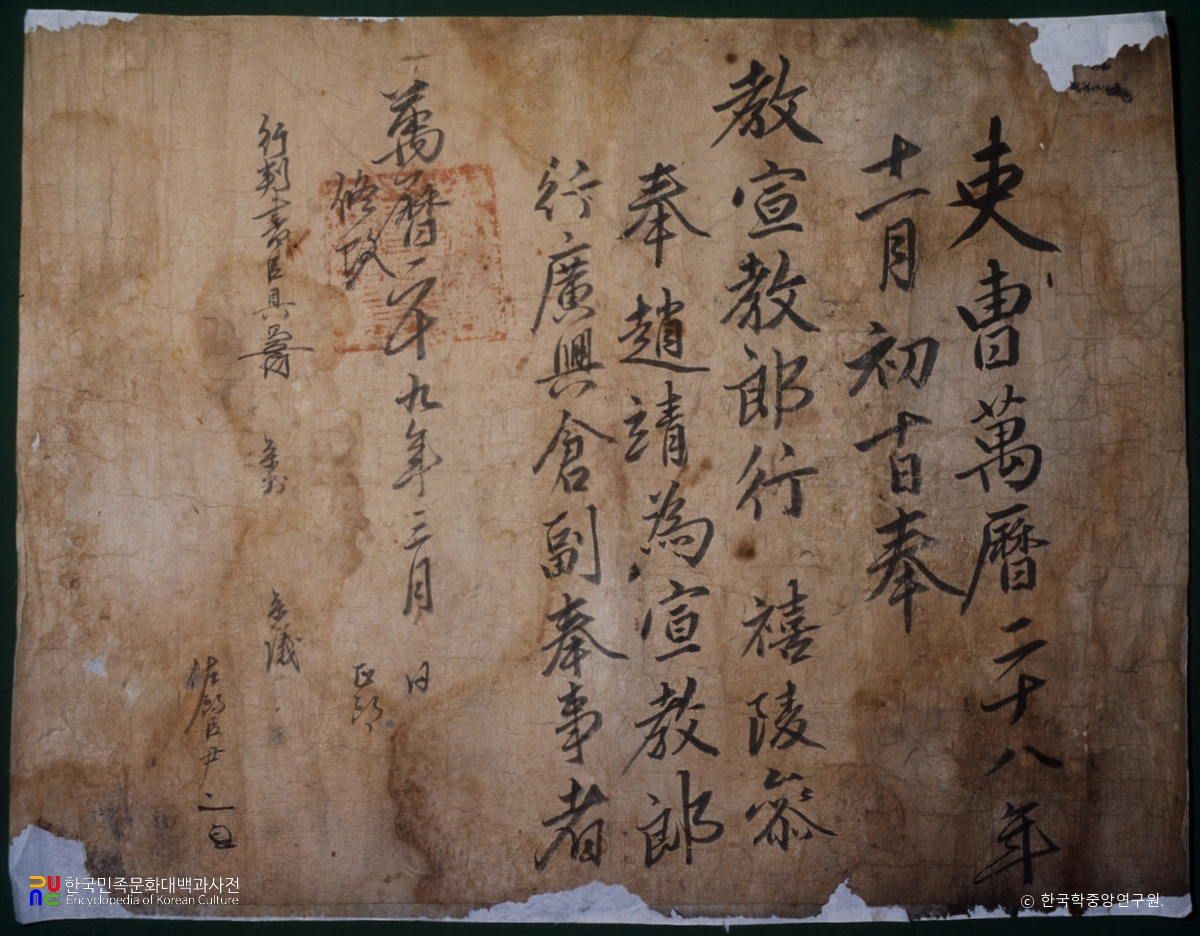 吏曹萬曆二十八年
十一月初十日奉
教宣教郎行 禧陵參
奉趙靖為宣教郎
行廣興倉副奉事者
萬曆二十九年三月 日
行判書臣 參判 參議
正郎
佐郎臣尹
한국민족문화대백과사전
Encyclopedia of Korean Culture
© 한국학중앙연구원.